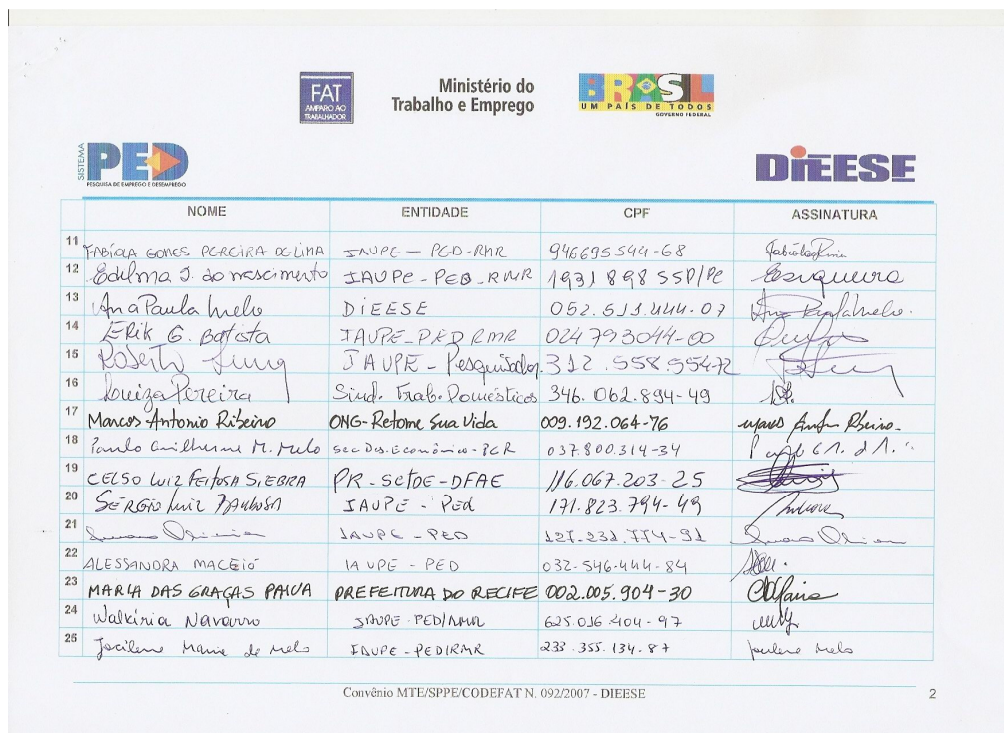 FAT
AMPARO AO
TRABALHADOR
Ministério do
Trabalho e Emprego
BRASIL
UM PAÍS DE TODOS
GOVERNO FEDERAL
SISTEMA
PED
PESQUISA DE EMPREGO E DESEMPREGO
DIEESE
NOME ENTIDADE CPF ASSINATURA
11 FABÍOLA GOMES PEREIRA DE LIMA IAUPE - PED-RMR 946695544-68
12 Edilma S. do nascimento IAUPE - PED-RMR 1931898 SSP/PE
13 Ana Paula Melo DIEESE 052.511.444-07 Ana Paula Melo.
14 ERIK G. Batista IAUPE-PED RMR 024793044-00
15 Roberto IAUPE - Pesquisador 312.558.554-72
16 Luiza Pereira Sind. Trab. Domésticos 346.062.894-49
17 Marcos Antonio Ribeiro ONG-Retome Sua Vida 009.192.064-76
18 Paulo Guilherme M. Melo Sec Des. Econômico-PCR 037.800.314-34
19 CELSO LUIZ FEITOSA SIEBRA PR-SETDE-DFAE 116.067.203-25
20 SÉRGIO LUIZ IAUPE - Ped 171.823.794-49
21 IAUPE - PED
22 ALESSANDRA MACEIÓ IAUPE - PED 032-546.444-84
23 MARIA DAS GRAÇAS PAIVA PREFEITURA DO RECIFE 002.005.904-30
24 Walkíria Navarro IAUPE-PED/RMR 625.016.404-97
25 Jocilene Maria de Melo IAUPE-PED/RMR 233.355.134.87 Jocilene Melo
Convênio MTE/SPPE/CODEFAT N. 092/2007 - DIEESE 2